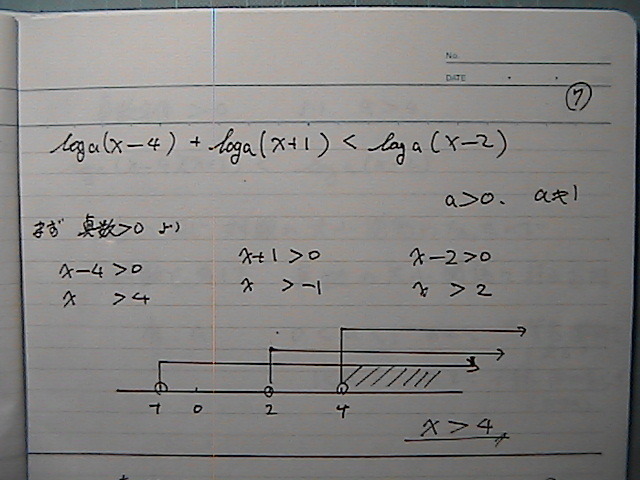 No.
DATE
⑦
log a (x-4) + log a (x+1) < log a (x-2)
a>0、 a≠1
まず 真数>0 より
x-4>0 x+1>0 x-2>0
x >4 x >-1 x >2
-1 0 2 4
x>4